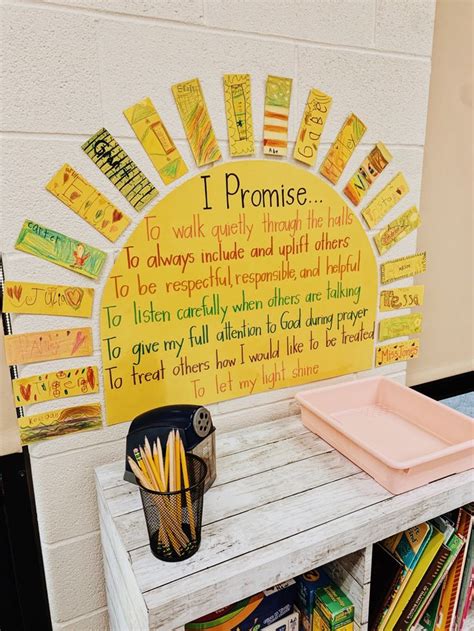 I Promise...
To walk quietly through the halls
To always include and uplift others
To be respectful, responsible, and helpful
To listen carefully when others are talking
To give my full attention to God during prayer
To treat others how I would like to be treated
To let my light shine
Gabe
Carter
Julia
Tessa
Miss Jones